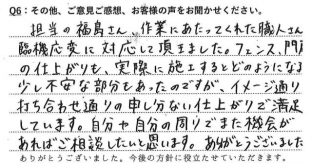 Q6：その他、ご意見ご感想、お客様の声をお聞かせください。
担当の福島さん、作業にあたってくれた職人さん
臨機応変に対応して頂きました。フェンス、門扉
の仕上がりも、実際に施工するとどのようになる
少し不安な部分もあったのですが、イメージ通り
打ち合わせ通りの申し分ない仕上がりで満足
しています。自分や自分の周りでまた機会が
あればご相談したいと思います。ありがとうございました
ありがとうございました。今後の方針に役立たせていただきます。